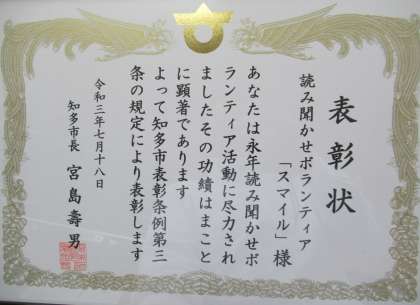 表彰状
読み聞かせボランティア
「スマイル」様
あなたは永年読み聞かせボ
ランティア活動に尽力され
ましたその功績はまこと
に顕著であります
よって知多市表彰条例第三
条の規定により表彰します
令和三年七月十八日
知多市長 宮島壽男